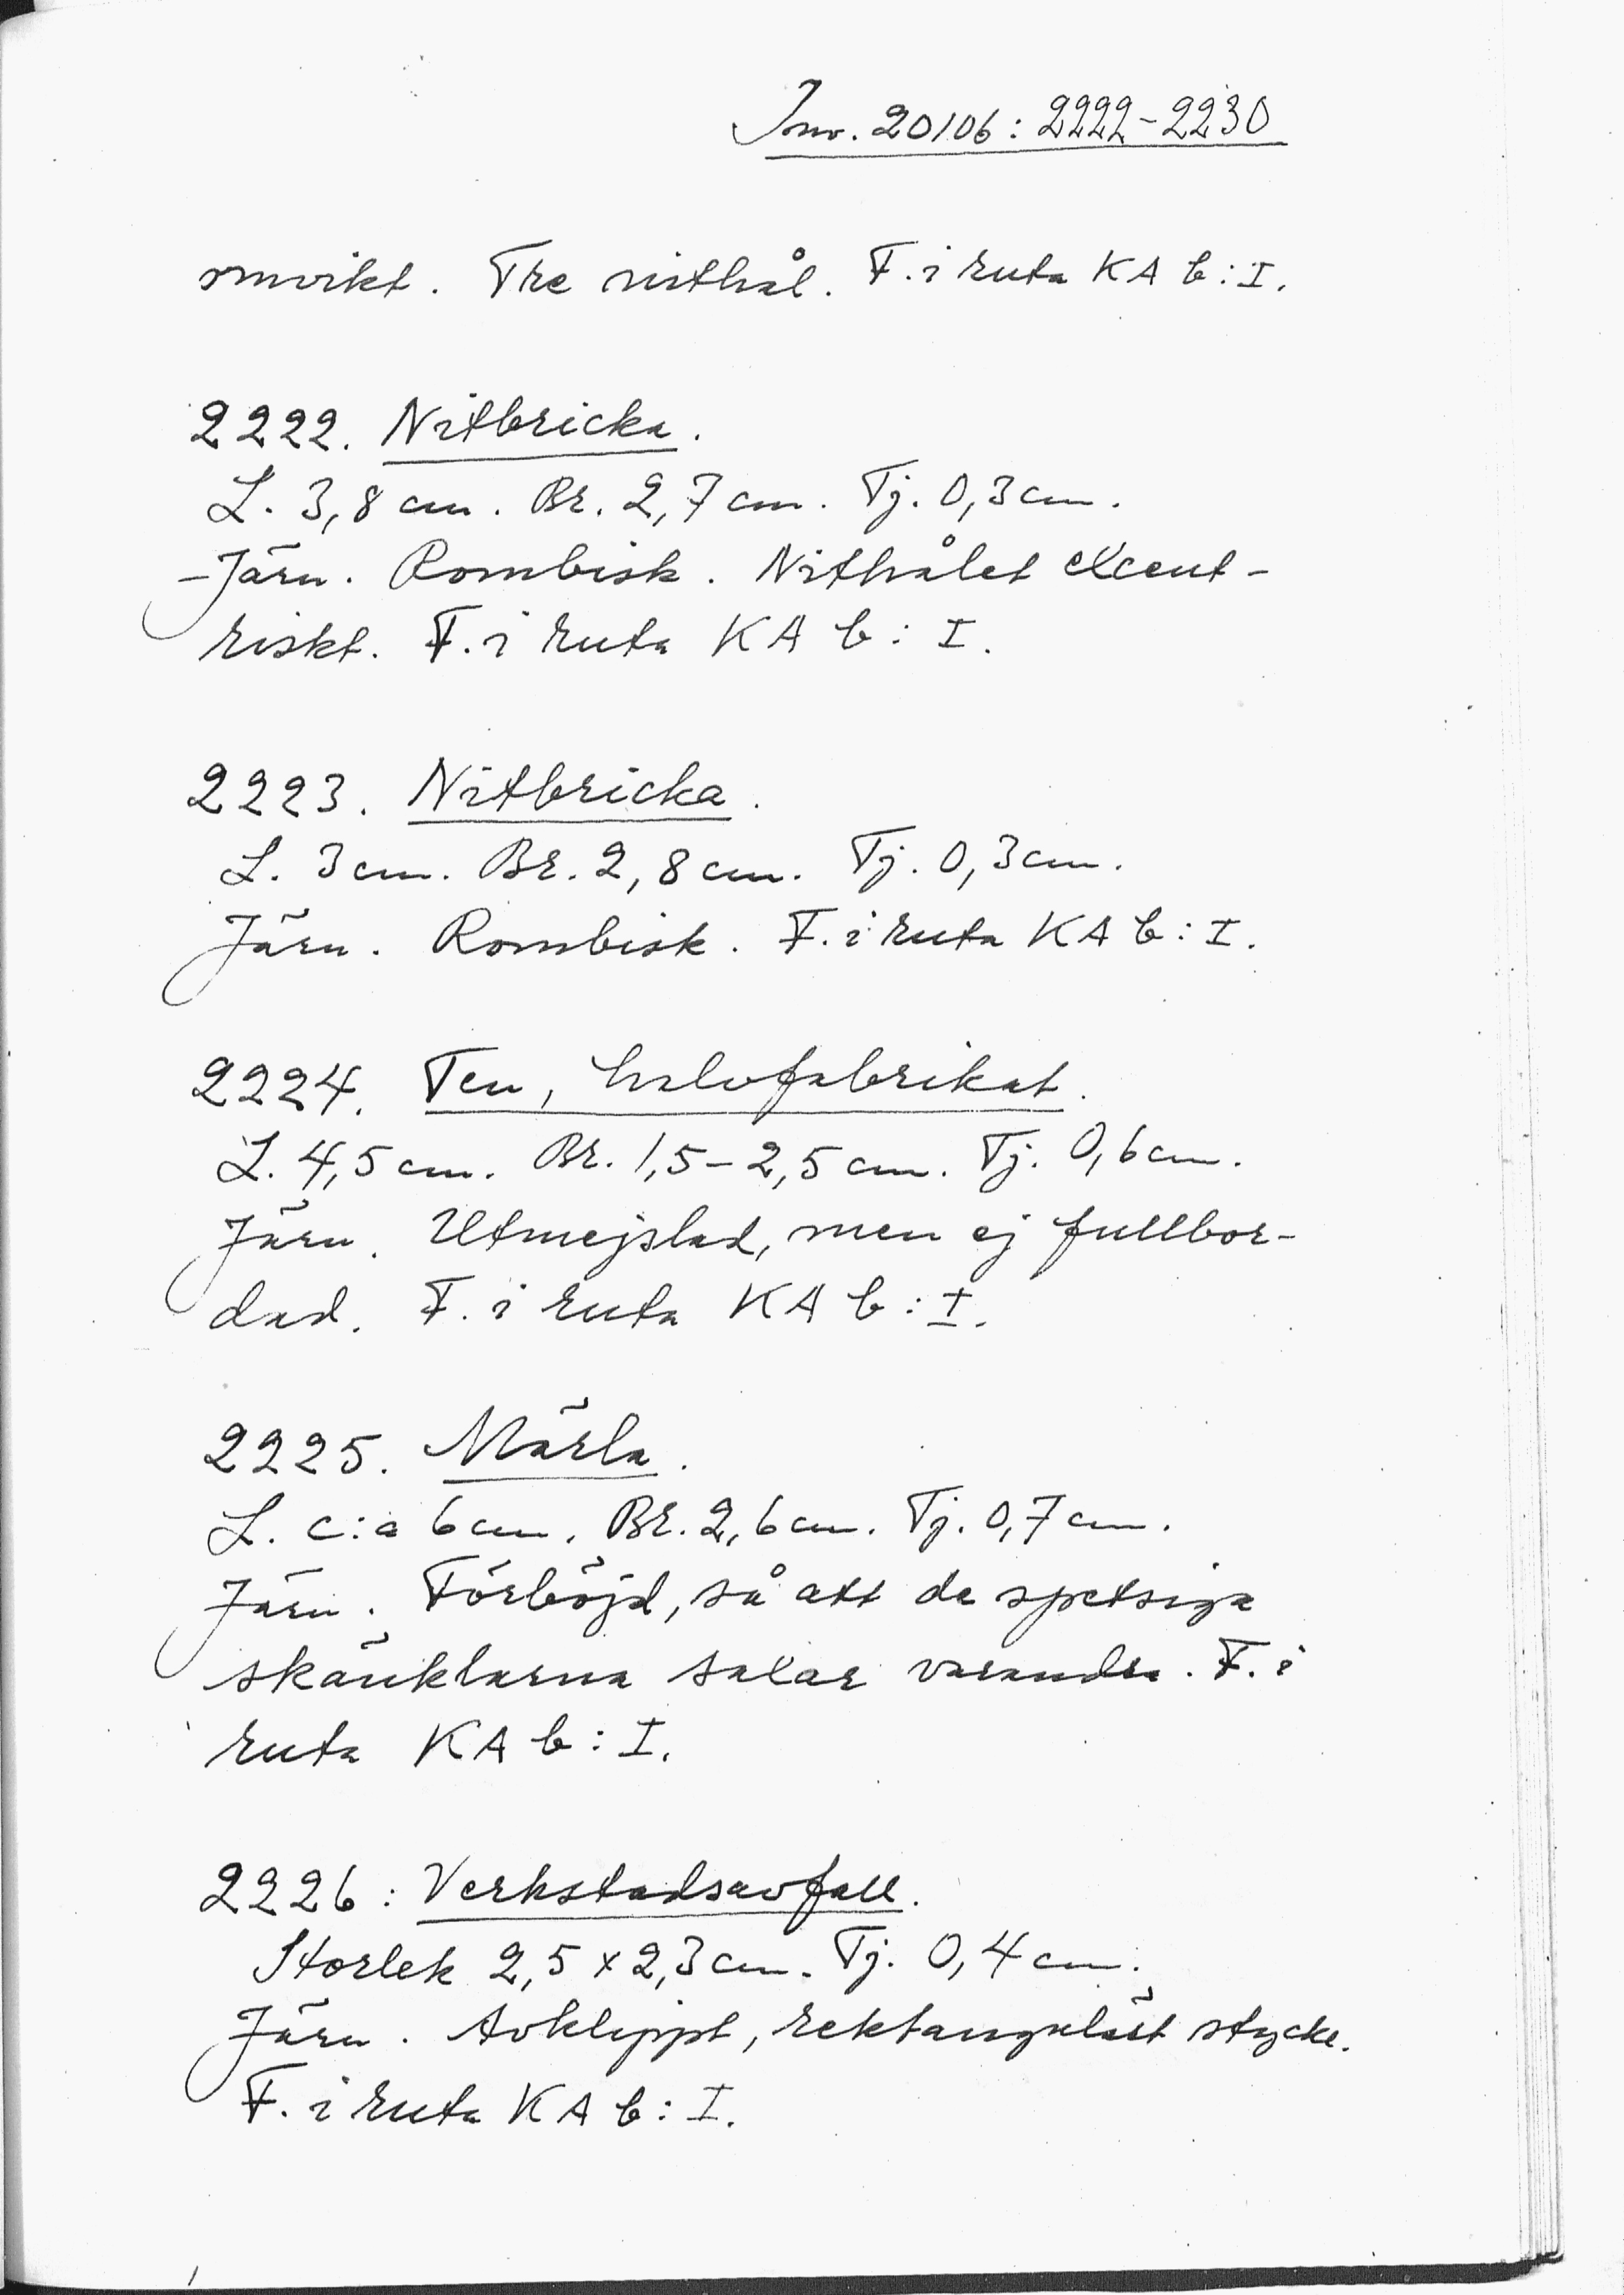 Inv. 20106: 2222-2230
omvikt. Tre nithål. F. i ruta KA b: I.
2222. Nitbricka.
L. 3,8 cm. Br. 2,7 cm. Tj. 0,3 cm.
Järn. Rombisk. Nithålet excent-
riskt. F. i ruta KA b: I.
2223. Nitbricka.
L. 3 cm. Br. 2,8 cm. Tj. 0,3 cm.
Järn. Rombisk. F. i ruta KA b: I.
2224. Ten, halvfabrikat.
L. 4,5 cm. Br. 1,5-2,5 cm. Tj. 0,6 cm.
Järn. Utmejslad, men ej fullbor-
dad. F. i ruta KA b: I.
2225. Märla.
L. c:a 6 cm. Br. 2,6 cm. Tj. 0,7 cm.
Järn. Förböjd, så att de spetsiga
skänklarna saxar varandra. F. i
ruta KA b: I.
2226: Verkstadsavfall.
Storlek 2,5 x 2,3 cm. Tj. 0,4 cm.
Järn. Avklippt, rektangulärt stycke.
F. i ruta KA b: I.